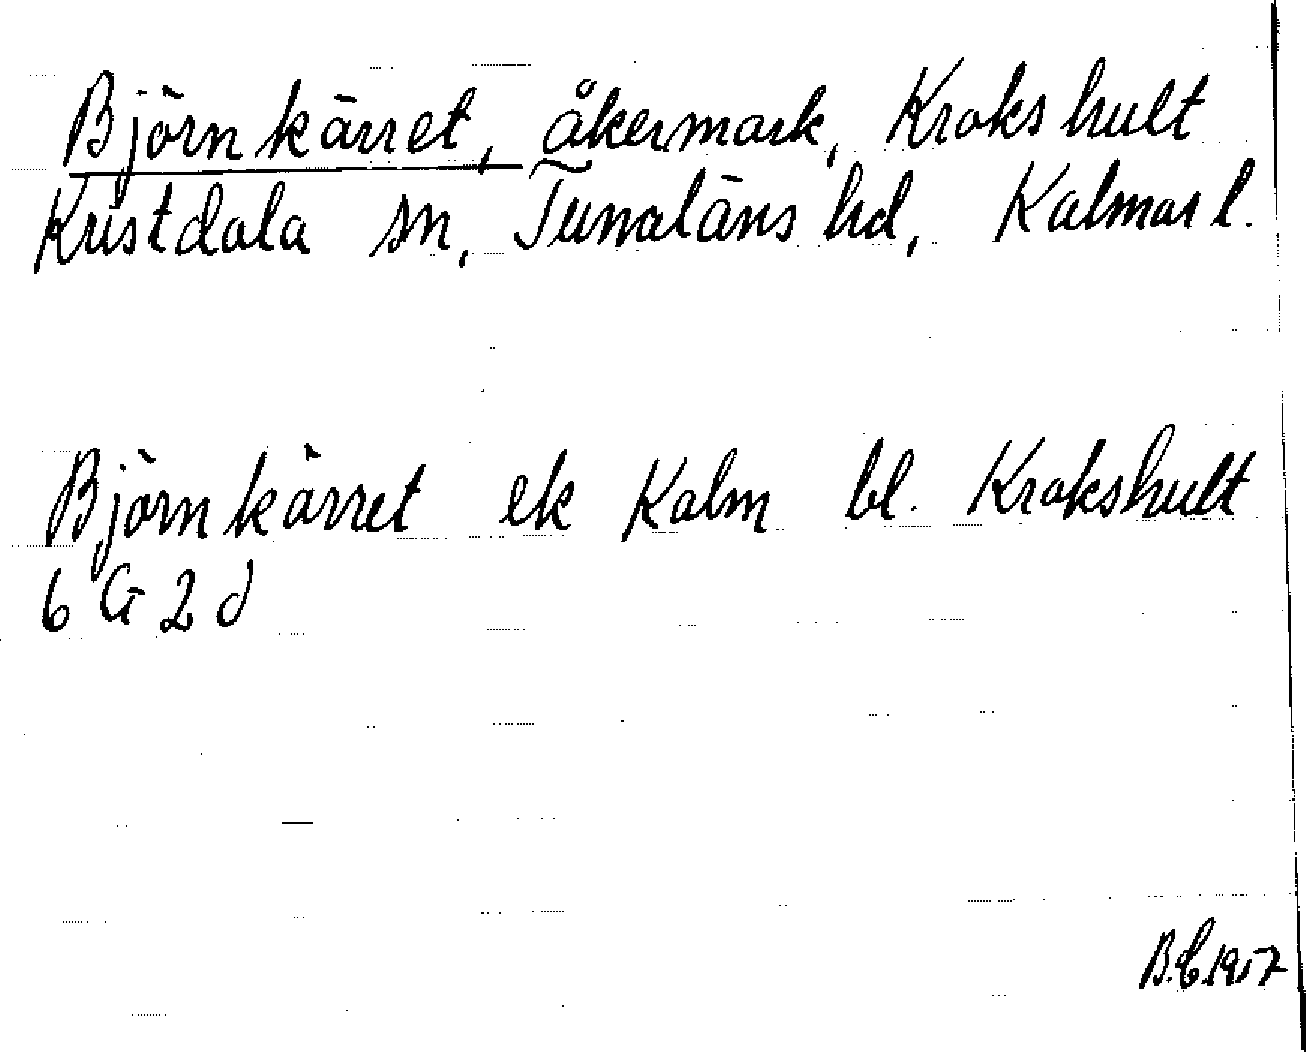 Björnkärret, åkermark, Krokshult
Kristdala sn, Tunaläns hd, Kalmar l.
Björnkärret ek Kalm bl. Krokshult
6 G 2 d
1957